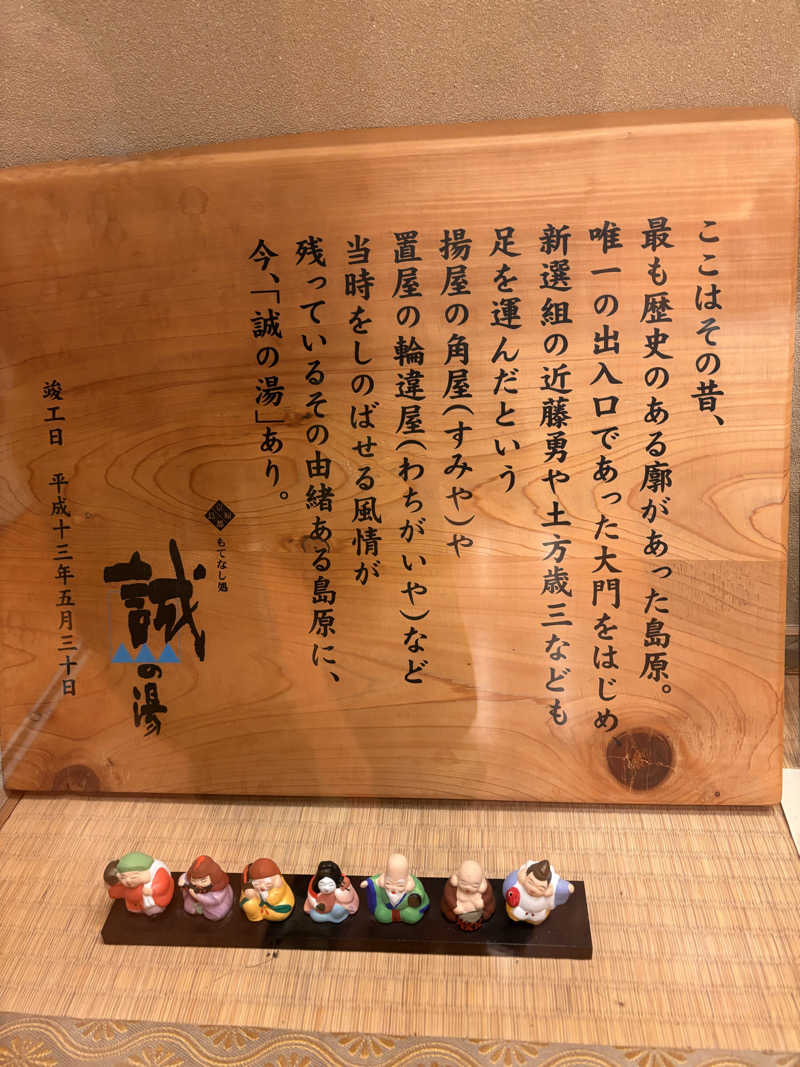 ここはその昔、
最も歴史のある廓があった島原。
唯一の出入口であった大門をはじめ、
新選組の近藤勇や土方歳三なども
足を運んだという
揚屋の角屋(すみや)や
置屋の輪違屋(わちがいや)など
当時をしのばせる風情が
残っているその由緒ある島原に、
今、「誠の湯」あり。
もてなし処
誠の湯
竣工日 平成十三年五月三十日